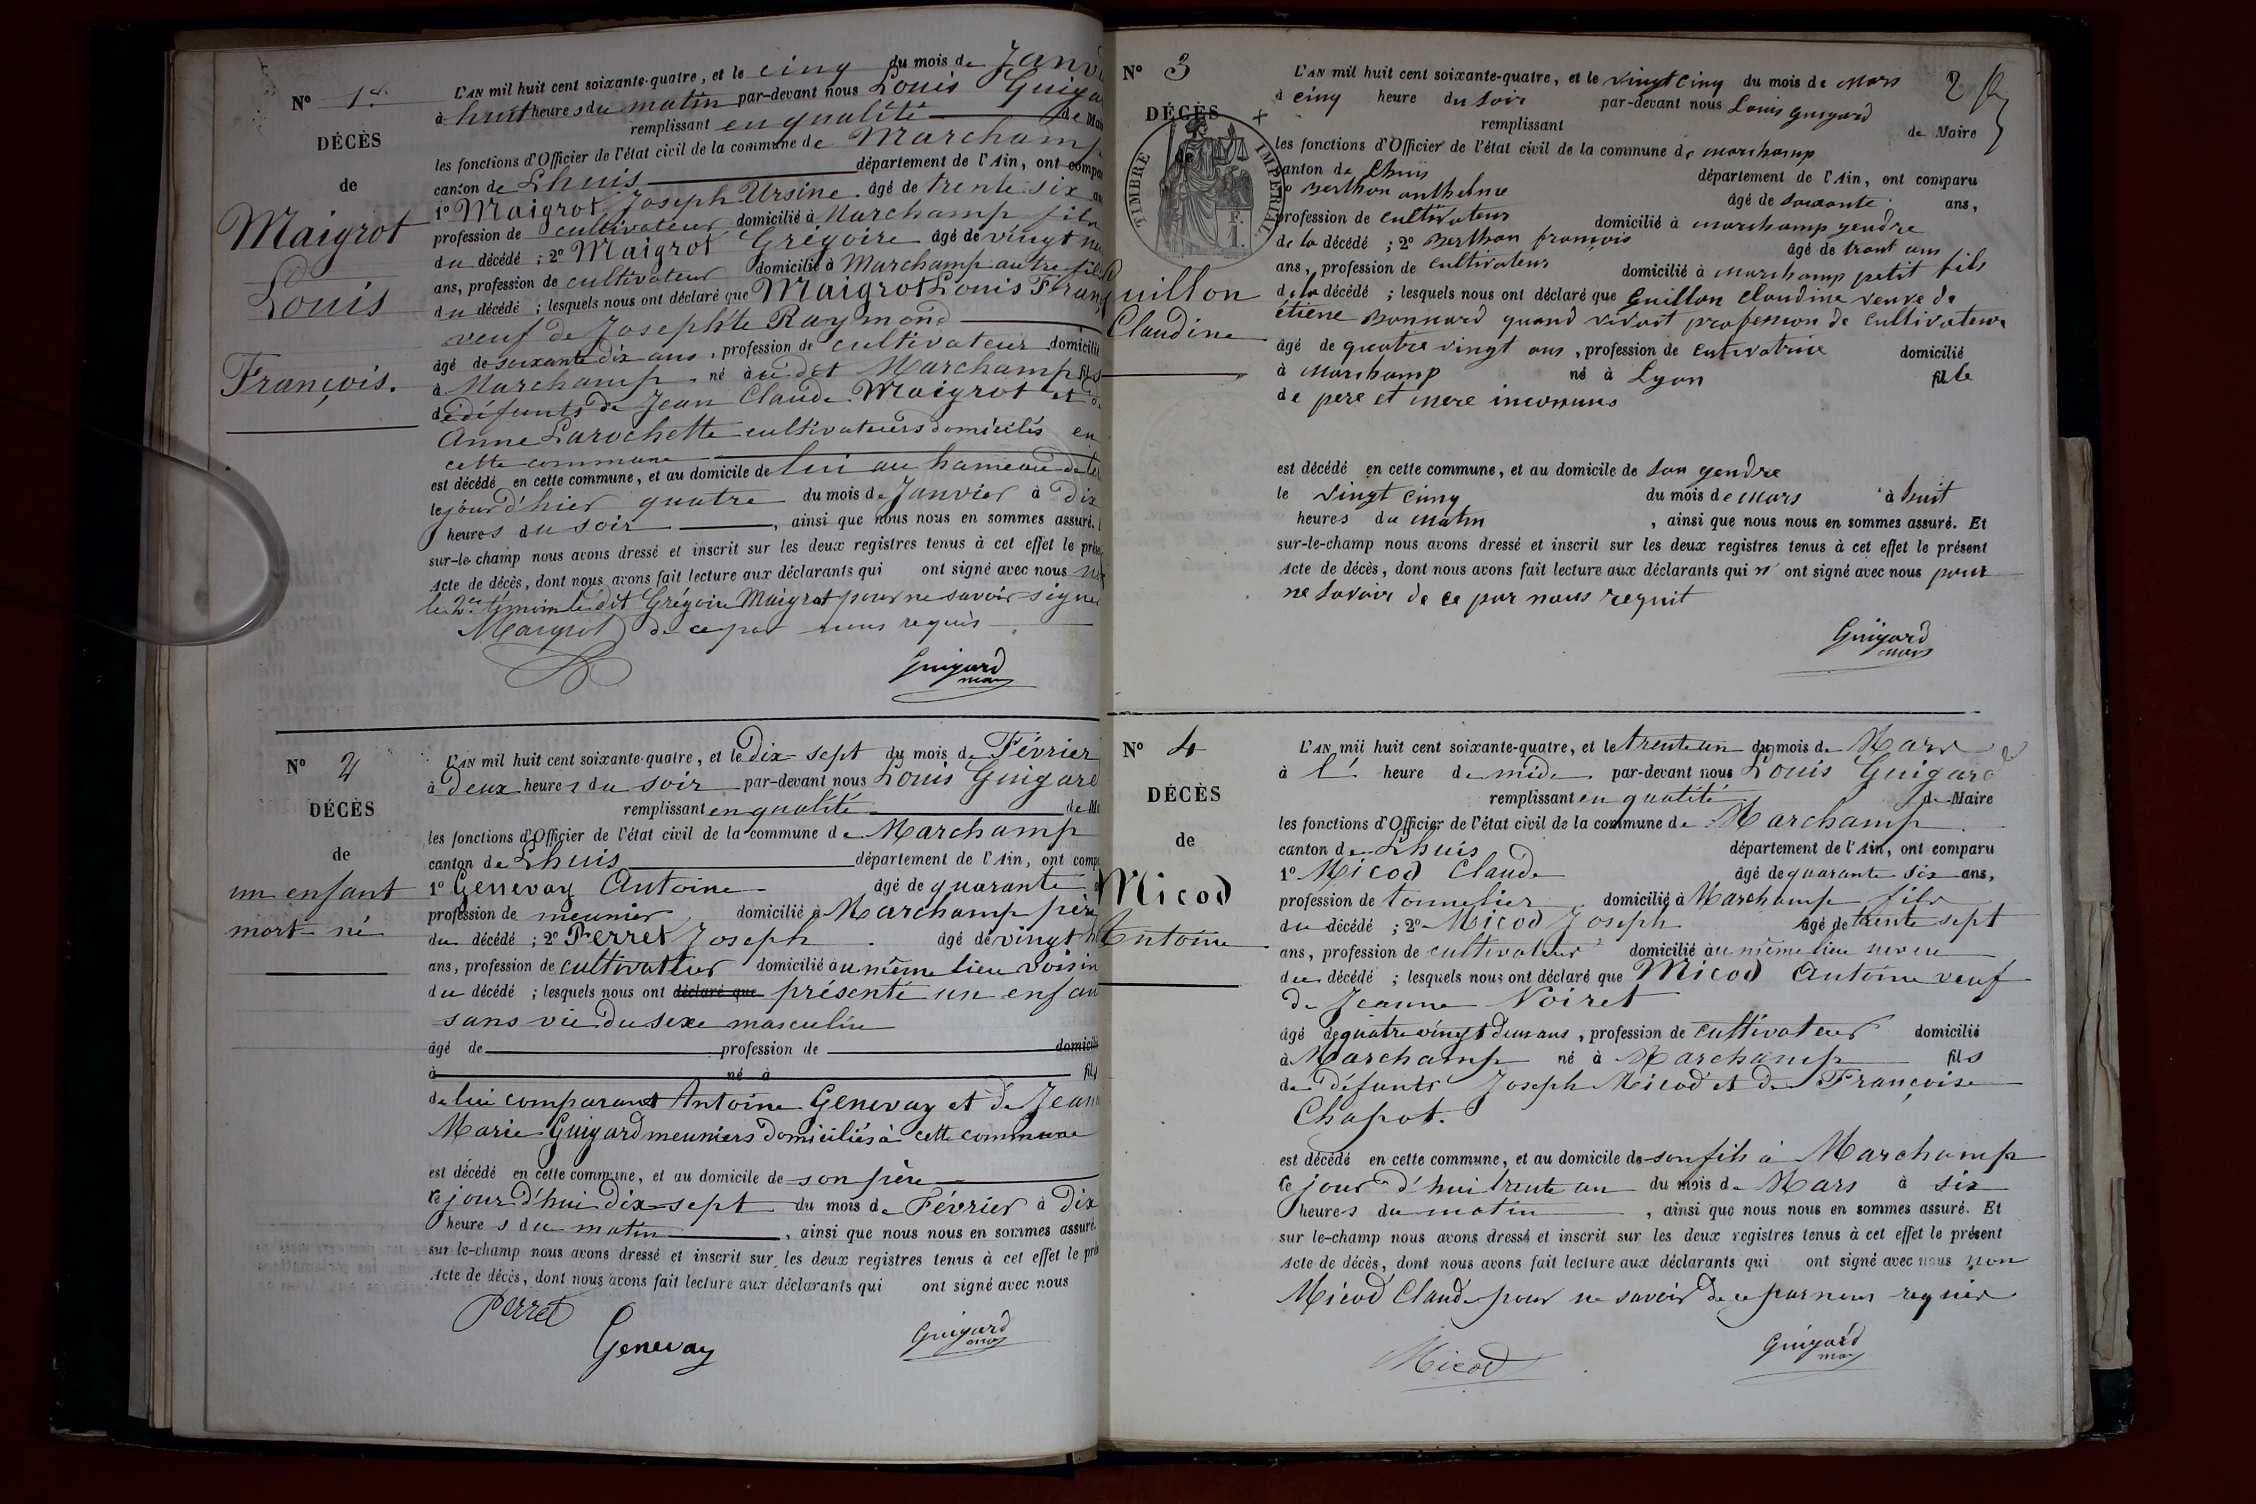 N° 1er
DÉCÈS
de
Maigrot
Louis
François.
L'AN mil huit cent soixante-quatre, et le cinq du mois de Janvi
à huit heures du matin par-devant nous Louis Guiga
remplissant en qualité de Mai
les fonctions d'Officier de l'état civil de la commune de Marchamp
canton de Lhuis département de l'Ain, ont compa
1° Maigrot Joseph Ursine âgé de trente six an
profession de cultivateur domicilié à Marchamp fils
du décédé ; 2° Maigrot Grégoire âgé de vingt neu
ans, profession de cultivateur domicilié à Marchamp autre fils
du décédé ; lesquels nous ont déclaré que Maigrot Louis Franç
veuf de Josephte Raymond
âgé de soixante dix ans, profession de cultivateur domicilié
à Marchamp né au dit Marchamp fils
de défunts de Jean Claude Maigrot et de
Anne Larochette cultivateurs domiciliés en
cette commune
est décédé en cette commune, et au domicile de lui au hameau de
le jour d'hier quatre du mois de Janvier à dix
heures du soir, ainsi que nous nous en sommes assuré.
sur-le-champ nous avons dressé et inscrit sur les deux registres tenus à cet effet le prése
Acte de décès, dont nous avons fait lecture aux déclarants qui ont signé avec nous non
le 2me témoin le dit Grégoire Maigrot pour ne savoir signer
Maigrot de ce par nous requis
Guigard
maire
N° 2
DÉCÈS
de
un enfant
mort-né
L'AN mil huit cent soixante-quatre, et le dix sept du mois de Février
à deux heures du soir par-devant nous Louis Guigard
remplissant en qualité de Ma
les fonctions d'Officier de l'état civil de la commune de Marchamp
canton de Lhuis département de l'Ain, ont compa
1° Genevay Antoine âgé de quarante
profession de meunier domicilié à Marchamp père
du décédé ; 2° Perret Joseph âgé de vingt h
ans, profession de cultivateur domicilié au même lieu voisin
du décédé ; lesquels nous ont déclaré que présenté un enfan
sans vie du sexe masculin
âgé de profession de domicilié
à né à fils
de lui comparant Antoine Genevay et de Jeann
Marie Guigard meuniers domiciliés à cette commune
est décédé en cette commune, et au domicile de son père
le jour d'hui dix sept du mois de Février à dix
heures du matin, ainsi que nous nous en sommes assuré.
sur le-champ nous avons dressé et inscrit sur les deux registres tenus à cet effet le prés
Acte de décès, dont nous avons fait lecture aux déclarants qui ont signé avec nous
Perret
Genevay
Guigard
maire
N° 3
DÉCÈS
de
TIMBRE IMPÉRIAL
F.
1.
Guillon
Claudine
2
L'AN mil huit cent soixante-quatre, et le vingt cinq du mois de Mars
à cinq heure du soir par-devant nous Louis Guigard
remplissant de Maire
les fonctions d'Officier de l'état civil de la commune de marchamp
canton de Lhuis département de l'Ain, ont comparu
1° Berthon anthelme âgé de soixante ans,
profession de cultivateur domicilié à marchamp gendre
de la décédé ; 2° Berthon françois âgé de trant ans
ans, profession de cultivateur domicilié à marchamp petit fils
de la décédé ; lesquels nous ont déclaré que Guillon Claudine veuve de
étiene Bonnard quand vivait profession de cultivateur
âgé de quatre vingt ans, profession de cultivatrice domicilié
à marchamp né à Lyon fille
de pere et mere inconnus
est décédé en cette commune, et au domicile de son gendre
le vingt cinq du mois de mars à huit
heures du matin, ainsi que nous nous en sommes assuré. Et
sur-le-champ nous avons dressé et inscrit sur les deux registres tenus à cet effet le présent
Acte de décès, dont nous avons fait lecture aux déclarants qui n' ont signé avec nous pour
ne savoir de ce par nous requit
Guigard
maire
N° 4
DÉCÈS
de
Micod
Antoine
L'AN mil huit cent soixante-quatre, et le trente un du mois de Mars
à 1 heure de midi par-devant nous Louis Guigard
remplissant en qualité de Maire
les fonctions d'Officier de l'état civil de la commune de Marchamp
canton de Lhuis département de l'Ain, ont comparu
1° Micod Claude âgé de quarante six ans,
profession de tonnelier domicilié à Marchamp fils
du décédé ; 2° Micod Joseph âgé de trente sept
ans, profession de cultivateur domicilié au même lieu neveu
du décédé ; lesquels nous ont déclaré que Micod Antoine veuf
de Jeanne Noiret
âgé de quatre vingt deux ans, profession de cultivateur domicilié
à Marchamp né à Marchamp fils
de défunts Joseph Micod et de Françoise
Chapot.
est décédé en cette commune, et au domicile de son fils à Marchamp
le jour d'hui trente un du mois de Mars à six
heures du matin, ainsi que nous nous en sommes assuré. Et
sur le-champ nous avons dressé et inscrit sur les deux registres tenus à cet effet le présent
Acte de décès, dont nous avons fait lecture aux déclarants qui ont signé avec nous non
Micod Claude pour ne savoir de ce par nous requis
Micod
Guigard
maire